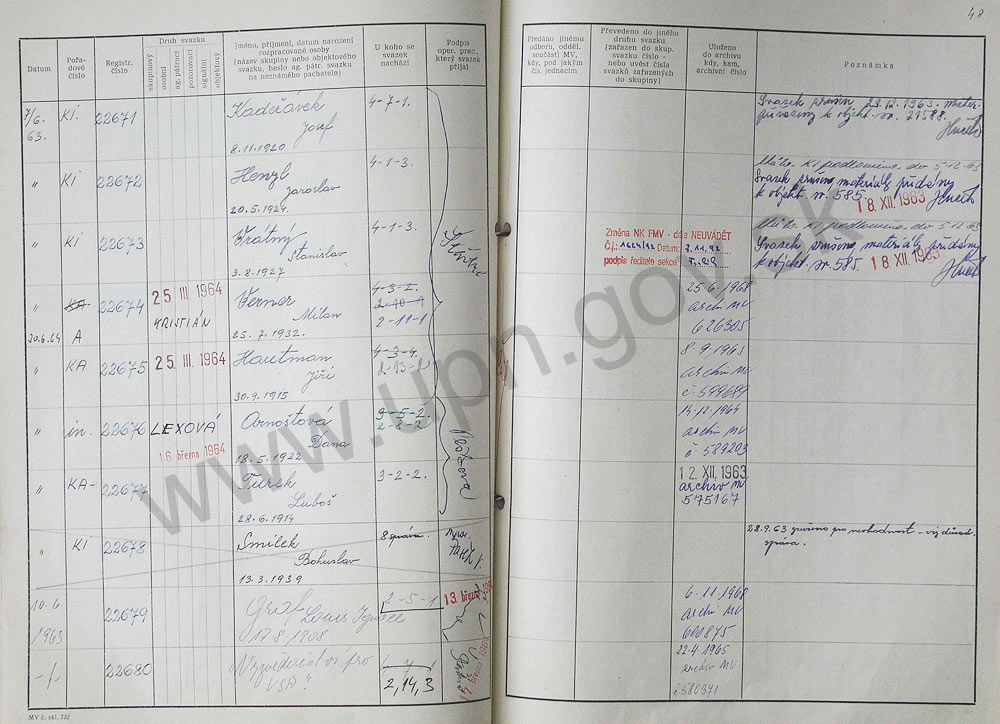 48
Datum
Pořa-
dové
číslo
Registr.
číslo
Druh svazku
skupinový
osobní
ag. pátrací
pozorovací
signální
objektový
Jméno, příjmení, datum narození
rozpracované osoby
(název skupiny nebo objektového
svazku, heslo ag. pátr. svazku
na neznámého pachatele)
U koho se
svazek
nachází
Podpis
oper. prac.,
který svazek
přijal
Předáno jinému
odboru, odděl.
součásti MV,
kdy, pod jakým
čís. jednacím
Převedeno do jiného
druhu svazku
(zařazen do skup.
svazku číslo -
nebo uvést čísla
svazků zařazených
do skupiny)
Uloženo
do archivu
kdy, kam,
archivní číslo
Poznámka
7/6.
63.
KI.
22671
Kadeřávek
Josef
8.11.1920
4-7-1.
Svazek zrušen 23.12.1963. mater.
k objekt. sv. 21588.
"
KI
22672
Henzl
Jaroslav
20.5.1924.
4-1-3.
do 5-12-63
Svazek zrušen, materiály přidány
k objekt. sv. 585.
18. XII. 1963
"
KI
22673
Vratný
Stanislav
3.8.1927
4-1-3.
Změna NK FMV - dále NEUVÁDĚT
Č.j.: Datum:
podpis ředitele sekce
do 5-12-63
Svazek zrušen, materiály přidány
k objekt. sv. 585.
18 XII. 1963
"
KA
30.6.64
A
22674
25 III 1964
KRISTIÁN
Verner
Milan
25.7.1932.
4-3-2.
2-10-1
2-11-1
25-6-1968
archiv MV
626305
"
KA
22675
25 III. 1964
Hautman
Jiří
30.9.1915
4-3-4.
2-13-2
8-9-1965
archiv MV
č 599689
"
in.
22676
LEXOVÁ
16 března 1964
Arnoštová
Dana
18.5.1922
9-5-2.
2-8-2
14-12-1964
archiv MV
č 589203
"
KA-
22677
Turek
Luboš
28.6.1914
3-2-2.
12. XII. 1963
archiv M
575167
"
KI
22678
Smilek
Bohuslav
13.3.1939
8 správa.
28.9.63 zrušeno pro nevhodnost - viz
zpráva.
10.6.
1963
22679
Graf Louis
17.8.1908
2-5-1
13. března
6-11-1968
archiv MV
600875
-/-
22680
pro
2,14,3
22-4-1965
archiv MV
č 580371
MV č. skl. 722
www.upn.gov.sk